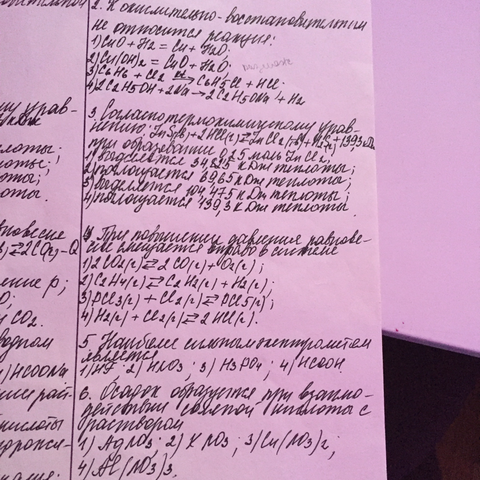 2. К окислительно-восстановительным
не относится реакция:
1) CuO + H2 = Cu + H2O.
2) Cu(OH)2 = CuO + H2O.
3) C6H6 + Cl2 → C6H5Cl + HCl.
4) 2C2H5OH + 2Na → 2C2H5ONa + H2
3. Согласно термохимическому урав-
нению: ZnS(к) + 2HCl(г) ⇄ ZnCl2(к) + H2S(г) +
при образовании 0,25 моль ZnCl2,
1) выделяется теплоты;
2) поглощается 69,65 кДж теплоты;
3) выделяется 104,475 кДж теплоты;
4) поглощается 139,3 кДж теплоты.
4. При повышении давления равнове-
сие смещается вправо в системе
1) 2CO2(г) ⇄ 2CO(г) + O2(г);
2) C2H4(г) ⇄ C2H2(г) + H2(г);
3) PCl3(г) + Cl2(г) ⇄ PCl5(г);
4) H2(г) + Cl2(г) ⇄ 2HCl(г).
5. Наиболее сильным электролитом
является
1) HF; 2) HNO3; 3) H3PO4; 4) HCOOH.
6. Осадок образуется при взаимо-
действии соляной кислоты с
раствором
1) AgNO3; 2) KNO3; 3) Cu(NO3)2;
4) Al(NO3)3.
лоты;
лоты;
оты;
лоты.
⇄ 2CO(г) - Q
ение p;
CO2.
HCOONa